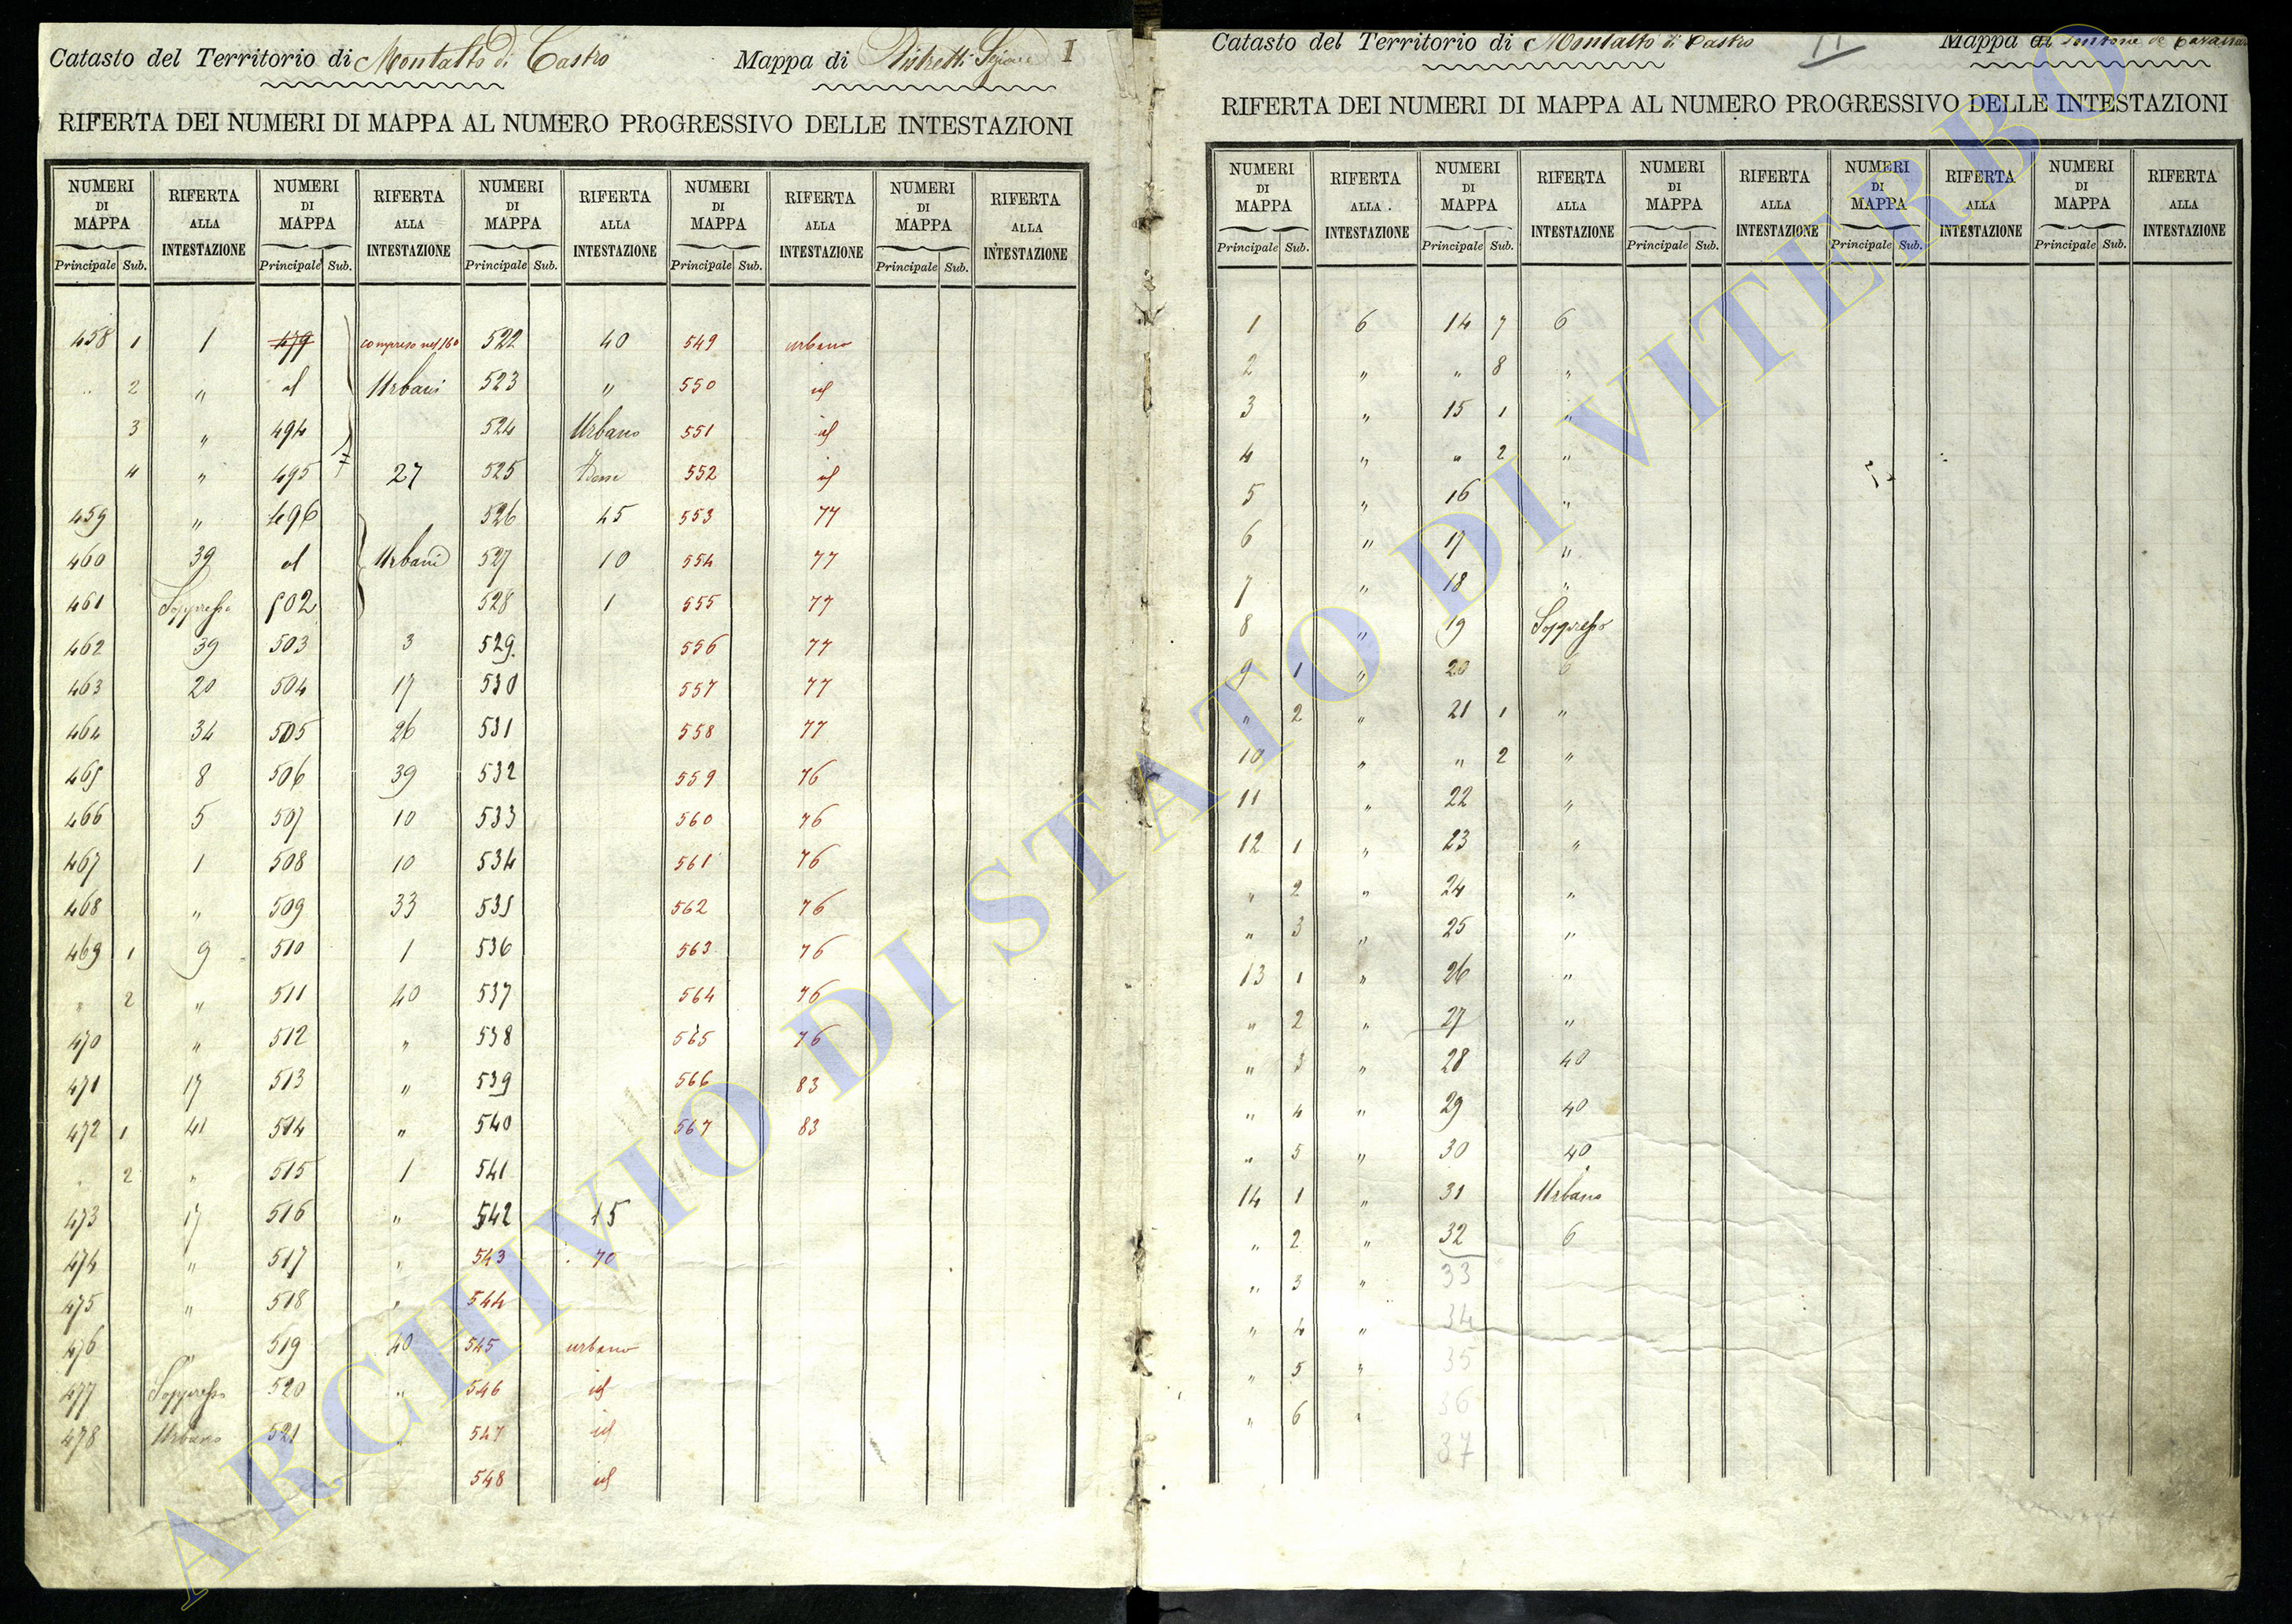 Catasto del Territorio di Montalto di Castro Mappa di Distretti I
RIFERTA DEI NUMERI DI MAPPA AL NUMERO PROGRESSIVO DELLE INTESTAZIONI
NUMERI DI MAPPA RIFERTA ALLA INTESTAZIONE NUMERI DI MAPPA RIFERTA ALLA INTESTAZIONE NUMERI DI MAPPA RIFERTA ALLA INTESTAZIONE NUMERI DI MAPPA RIFERTA ALLA INTESTAZIONE NUMERI DI MAPPA RIFERTA ALLA INTESTAZIONE
Principale Sub. Principale Sub. Principale Sub. Principale Sub. Principale Sub.
458 1 1 479 compreso nel 160 522 40 549 urbano
" 2 " al Urbani 523 " 550 id
3 " 494 524 Urbano 551 id
4 " 495 27 525 552 id
459 " 496 526 45 553 77
460 39 al Urbani 527 10 554 77
461 Soppresso 502 528 1 555 77
462 39 503 3 529. 556 77
463 20 504 17 530 557 77
464 34 505 26 531 558 77
465 8 506 39 532 559 76
466 5 507 10 533 560 76
467 1 508 10 534 561 76
468 " 509 33 535 562 76
469 1 9 510 1 536 563 76
" 2 " 511 40 537 564 76
470 " 512 " 538 565 76
471 17 513 " 539 566 83
472 1 41 514 " 540 567 83
" 2 " 515 1 541
473 17 516 " 542 15
474 " 517 " 543 70
475 " 518 " 544
476 " 519 40 545 urbano
477 Soppresso 520 " 546 id
478 Urbano 521 " 547 id
548 id
Catasto del Territorio di Montalto di Castro II Mappa di
RIFERTA DEI NUMERI DI MAPPA AL NUMERO PROGRESSIVO DELLE INTESTAZIONI
NUMERI DI MAPPA RIFERTA ALLA INTESTAZIONE NUMERI DI MAPPA RIFERTA ALLA INTESTAZIONE NUMERI DI MAPPA RIFERTA ALLA INTESTAZIONE NUMERI DI MAPPA RIFERTA ALLA INTESTAZIONE NUMERI DI MAPPA RIFERTA ALLA INTESTAZIONE
Principale Sub. Principale Sub. Principale Sub. Principale Sub. Principale Sub.
1 6 14 7 6
2 " " 8 "
3 " 15 1 "
4 " " 2 "
5 " 16 "
6 " 17 "
7 " 18 "
8 " 19 Soppresso
9 1 " 20 6
" 2 " 21 1 "
10 " " 2 "
11 " 22 "
12 1 " 23 "
" 2 " 24 "
" 3 " 25 "
13 1 " 26 "
" 2 " 27 "
" 3 " 28 40
" 4 " 29 40
" 5 " 30 40
14 1 " 31 Urbano
" 2 " 32 6
" 3 " 33
" 4 " 34
" 5 " 35
" 6 " 36
37
ARCHIVIO DI STATO DI VITERBO